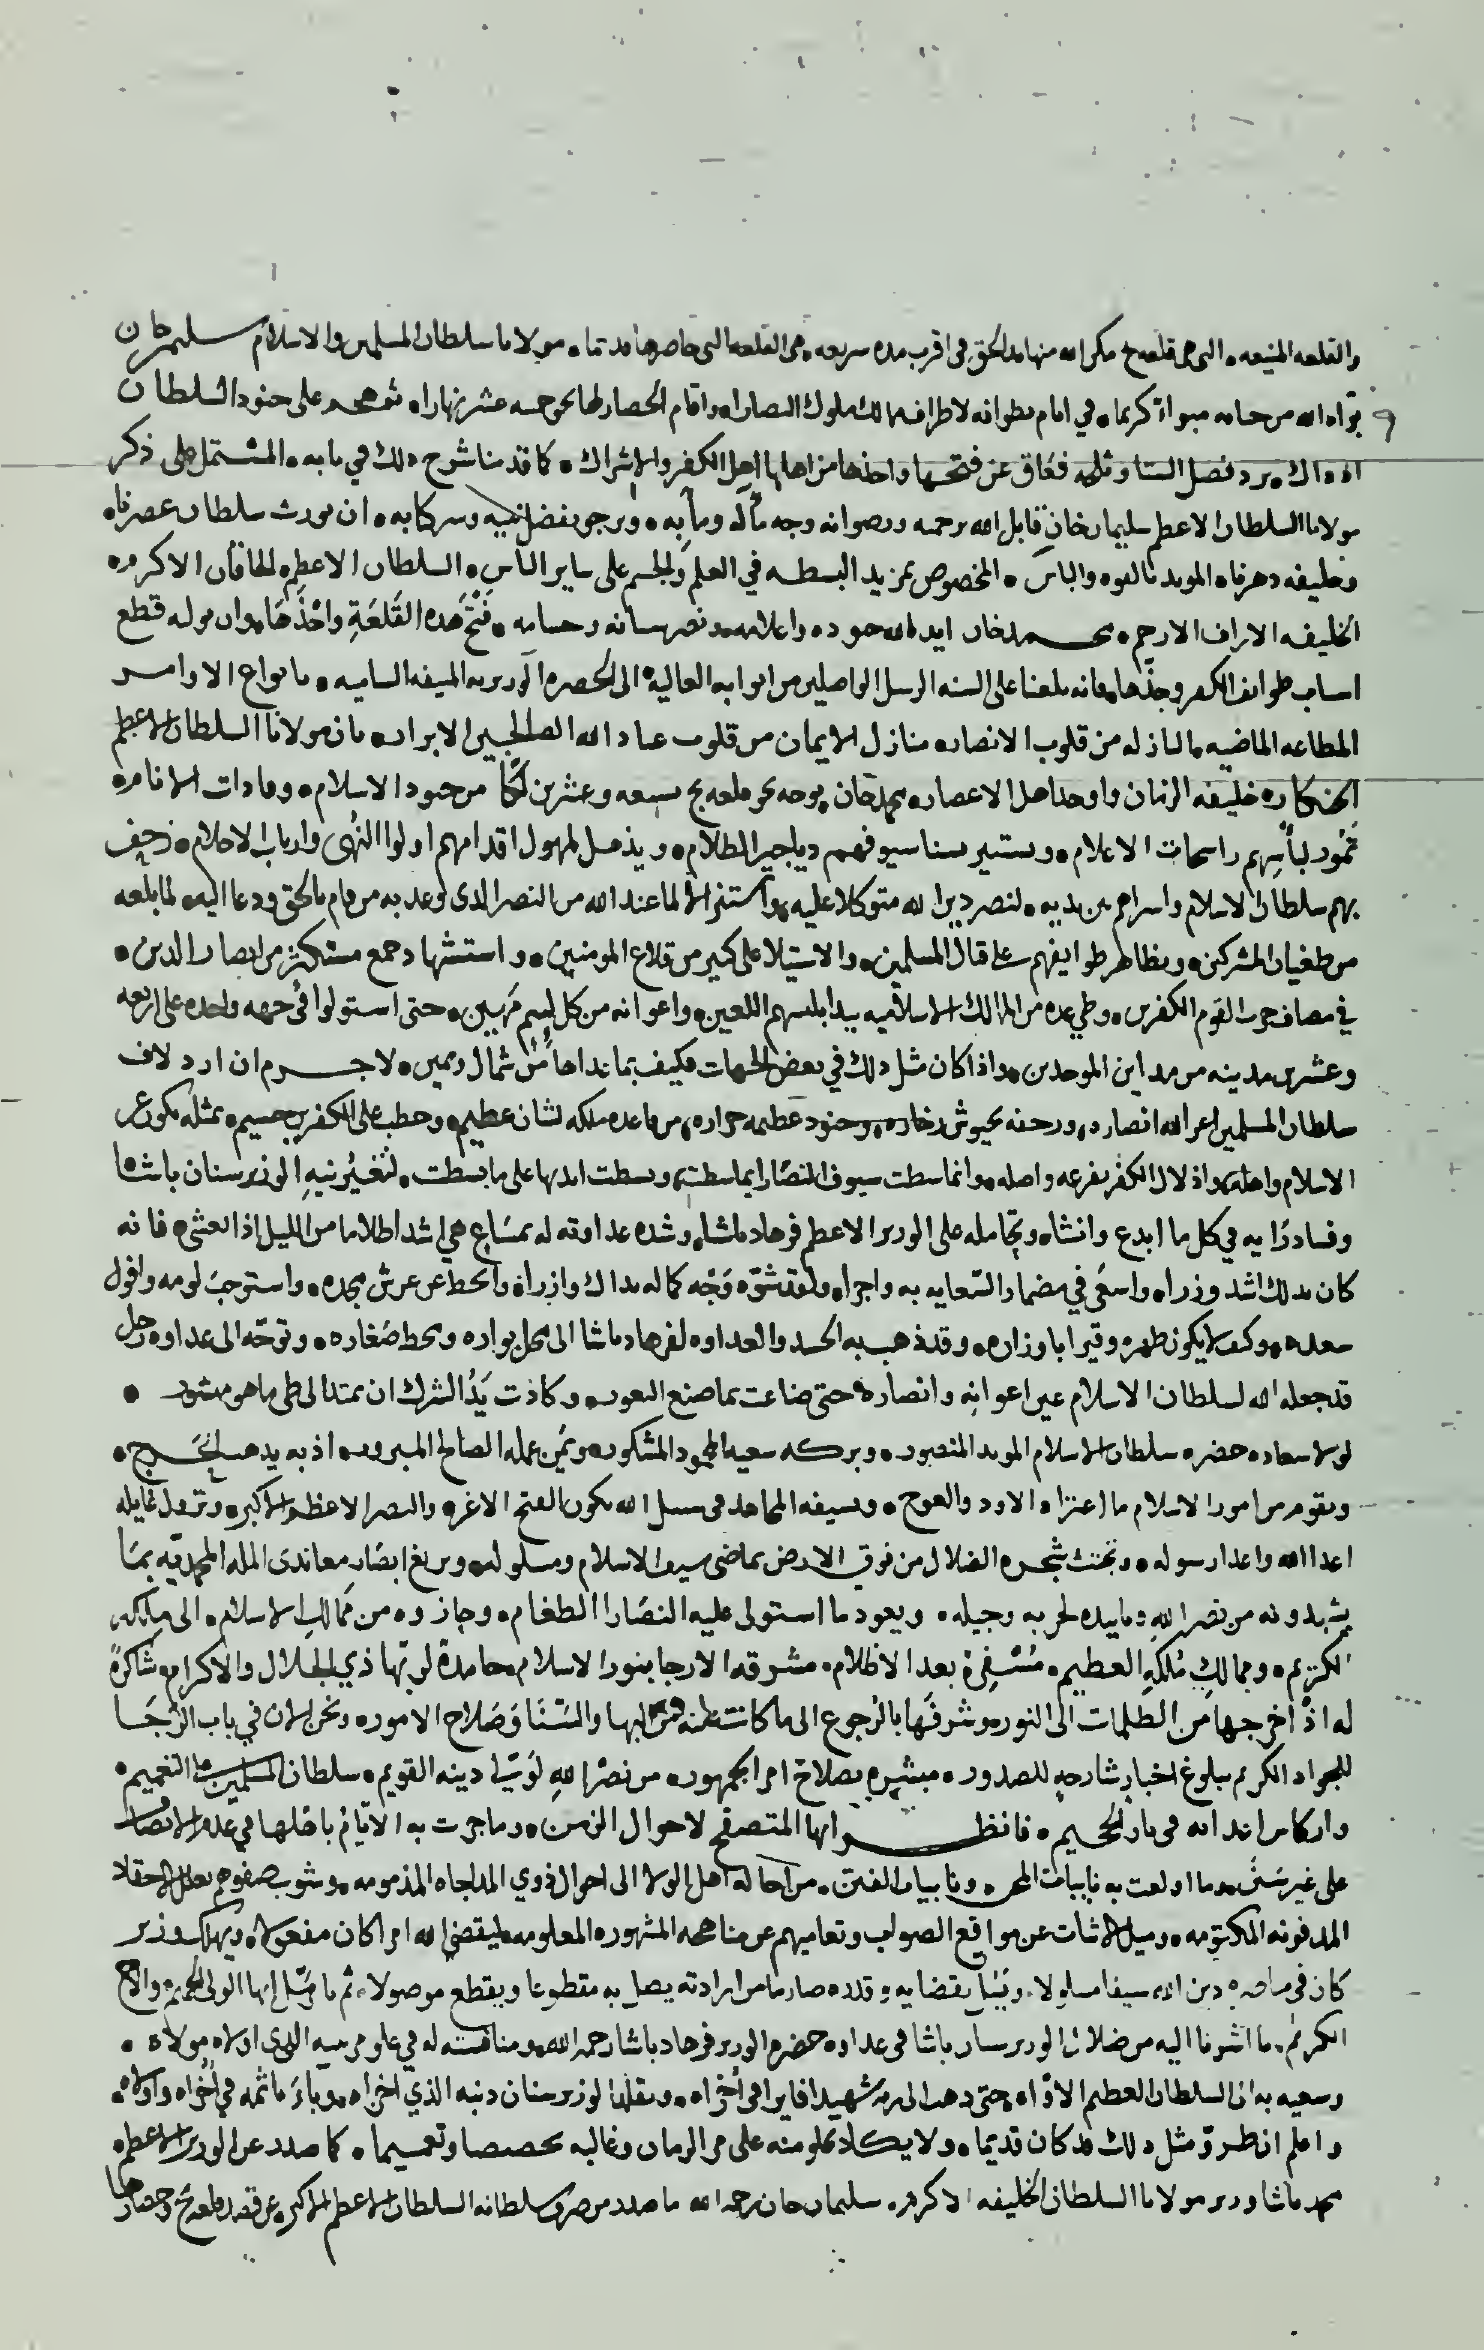 والقلعه المنيعه، التي هي قلعه بج مكن الله منها يد الحق في اقرب مده سريعه، هي القلعه التي حاصرها قديما، مولانا سلطان المسلمين والاسلام سليمن خان
بوّاه الله من جنانه مبواءً كريما، في ايام بطوافه لاطراف ممالك ملوك النصارا، واقام الحصار لها نحو خمسه عشر نهارا، ثم هجم على جنود السلطان
اذ ذاك برد فصل الشتا وثلجه فعاق عن فتحها واخذها من اهلها اهل الكفر والاشراك، كما قدمنا شرح ذلك في بابه، المشتمل على ذكر
مولانا السلطان الاعظم سليمان خان قابل الله برحمته ورضوانه وجه مآله ومآبه، ونرجو بفضل نبيه وسر كتابه، ان يورث سلطان عصرنا،
وخليفه دهرنا، المويد بالقوه والباس، المخصوص بمزيد البسطه في العلم والجسم على ساير الناس، السلطان الاعظم، الخاقان الاكرم،
الخليفه الاراف الارحم، محمد خان ايد الله جنوده واعلامه، ونصر سنانه وحسامه، فَتْحَ هذه القَلعَةِ واخْذَهَا، وان يوله قطع
اسباب طوايف الكفر وجذّها، فانه بلغنا على السنه الرسل الواصلين من ابوابه العالية الى الحضره الوزيريه المنيفه الساميه، بانواع الاوامر
المطاعه الماضيه، النازله من قلوب الانصار، منازل الايمان من قلوب عباد الله الصالحين الابرار، بان مولانا السلطان الاعظم
الخنكار، خليفه الزمان واوحد اهل الاعصار، محمد خان، توجه نحو قلعه بج بسبعه وعشرين لكًا من جنود الاسلام، وقادات الانام،
تمور لبأسِهم راسيات الاعلام، وتستنير بسنا سيوفهم دياجير الظلام، ويذهل لمهول اقدامهم اولوا النُهى وارباب الاحلام، زحف
بهم سلطان الاسلام واسراهم بين يديه، لنصر دين الله متوكلا عليه، واستنزالا لما عند الله من النصر الذى وعد به من قام بالحق ودعا اليه، لما بلغه
من طغيان المشركين، وتظاهر طوايفهم على قتال المسلمين، والاستيلا على كثير من قلاع المومنين، واستشهاد جمع مستكثر من انصار الدين،
في مصاف حرب القوم الكفرين، وطي عده من الممالك الاسلاميه بيد ابليسهم اللعين، واعوانه من كل ليم مَهين، حتى استولوا في جهه واحده على اربعه
وعشرين مدينه من مداين الموحدين، واذا كان مثل ذلك في بعض الجهات فكيف بما عداها من شمال ويمين، لاجرم ان اردلاف
سلطان المسلمين اعز الله انصاره، وزحفه بجيوش زخاره، وجنود عظيمه جراره، من قاعده ملكه لشان عظيم، وخطب على الكفرين جسيم، بمثله يكون عز
الاسلام واهله، واذلال الكفر بفرعه واصله، وانما سطت سيوف النصارا بما سطت، وبسطت ايديها على ما بسطت، لتغيُّر نيةِ الوزير سنان باشا
وفساد رَايه في كل ما ابدع وانشا، وتحامله على الوزير الاعظم فرهاد باشا، وشده عداوته له بمساعٍ هي اشد اظلاما من الليل اذا يغشى، فانه
كان بذلك اشد وزرا، واسعَى في مضمار السّعايه به واجرا، ولقد شوّه وَجْه كماله بذاك وازرا، وانحط عن عرش مجده، واستوجبَ لومه وافول
سعده، وكيف لا يكون ظهره وقيرا باوزاره، وقد ذهب به الحسد والعداوه لفرهاد باشا الى محل بواره ومحط صَغاره، وتوجّه الى عداوه رجل
قد جعله الله لسلطان الاسلام عين اعوانه وانصاره، حتى ضاعت بما صنع الثغور، وكادت يَدُ الشرك ان تمتد الى طي ما هو منشور،
لولا سعاده حضره سلطان الاسلام المويد المنصور، وبركه سعيه المحمود المشكور، ويُمن عمله الصالح المبرور، اذ به يذهب الحَرَج،
ويقوم من امور الاسلام ما اعتراه الاود والعوج، وبسيفه المجاهد في سبيل الله يكون الفتح الاغر، والنصر الاعظم الاكبر، وتزول غايله
اعدا الله واعدا رسوله، وتجتث شجره الضلال من فوق الارض بماضى سيف الاسلام ومسلوله، وتزيغ ابصَار معاندى المله المحمديّه بمَا
يشهدونه من نصر اللهِ وتاييده لحزبه وجيله، ويعود ما استولى عليه النصَارا الطغام، وحازوه من مَمالك الاسلام، الى مالكه
الكريم، وممالكِ مُلكهِ العظيم، مُسْفِرةً بعد الاظلام، مشرقه الارجا بنور الاسلام، حامدةً لربها ذي الجلال والاكرام، شاكرةً
له اذْ اخرجها من الظلمات الى النور، وشرفَها بالرجوع الى ما كانت عليه من البها والسَنَا وَصَلاح الامور، ونحن الان في باب الرَّجَا
للجواد الكريم ببلوغ اخبارٍ شارحهٍ للصدور، مبشرهٍ بصلاح امر الجمهور، من نصْرِ اللهِ لوَليّ دينه القويم، سلطان المسلمين على التعميم،
واركاس اندادِه في نار الجحيم، فانظر ايها المتصفح لاحوال الزمن، وما جرت به الايّامُ باهْلها في عدم الانصاف
على غير سَنَن، وما اولعت به نايبات المحن، ونابيات الفتن، من احاله اهل الولا الى احوال ذوي المداجاه المذمومه، وشوب صفوهم بغلل الاحقاد
المدفونه المكتومه، وميل الاشات عن مواقع الصواب وتعاميهم عن مناهجه المشهوره المعلومه، ليقضي الله امرا كان مفعولا، ويهلك وزير
كان في مناصره دين الله سيفا مسلولا، ويَنبُا بقضايه وقدره صارما من ارادته يصل به مقطوعا ويقطع موصولا، ثم تامّل ايها الولى الحميم، والاخ
الكريم، ما اشرنا اليه من ضلال الوزير سنان باشا في عداوه حضره الوزير فرهاد باشا رحمه الله، ومنافسته له في علو مرتبته الذى اولاه مولاه،
وسعيه به الى السلطان العظيم الاوّاه، حتى ذهب الى ربه شهيدا فايزا في أُخراه، وتقلّد الوزير سنان ذنبه الذي اخزاه، وبآءَ باثمه في أُخراه وأولاه،
واعلم ان طروّ مثل ذلك قد كان قديما، ولا يكاد يخلو منه على مر الزمان وغالبه تخصيصا وتعميما، كما صدر عن الوزير الاعظم
محمد باشا وزير مولانا السلطان الخليفه الاكرم، سليمان خان رحمه الله ما صدر من صرف سلطانه السلطان الاعظم الاكبر، عن قصد قلعه بج وحصارها